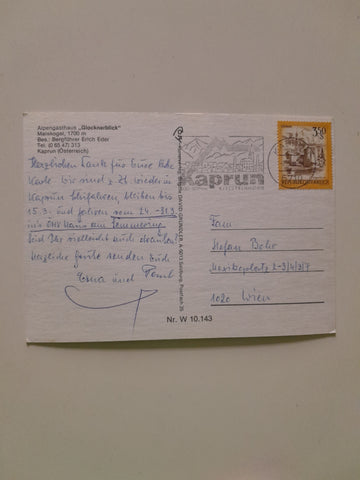 Alpengasthaus „Glocknerblick“
Maiskogel, 1700 m
Bes.: Bergführer Erich Eder
Tel. (0 65 47) 313
Kaprun (Österreich)
Herzlichen Dank für Eure liebe
Karte. Wir sind z. Zt. wieder in
Kaprun Skifahren, bleiben bis
15.3. und fahren vom 24.-31.3.
ins ÖAV Haus am
Seid Ihr vielleicht auch
Herzliche Grüße senden Euch
Erna und
DAVID GRÜNHOLZ A-5013 Salzburg, Postfach 35
Nr. W 10.143
Kaprun
350
REPUBLIK ÖSTERREICH
Fam
Stefan
2-3/4/3/7
1020 Wien